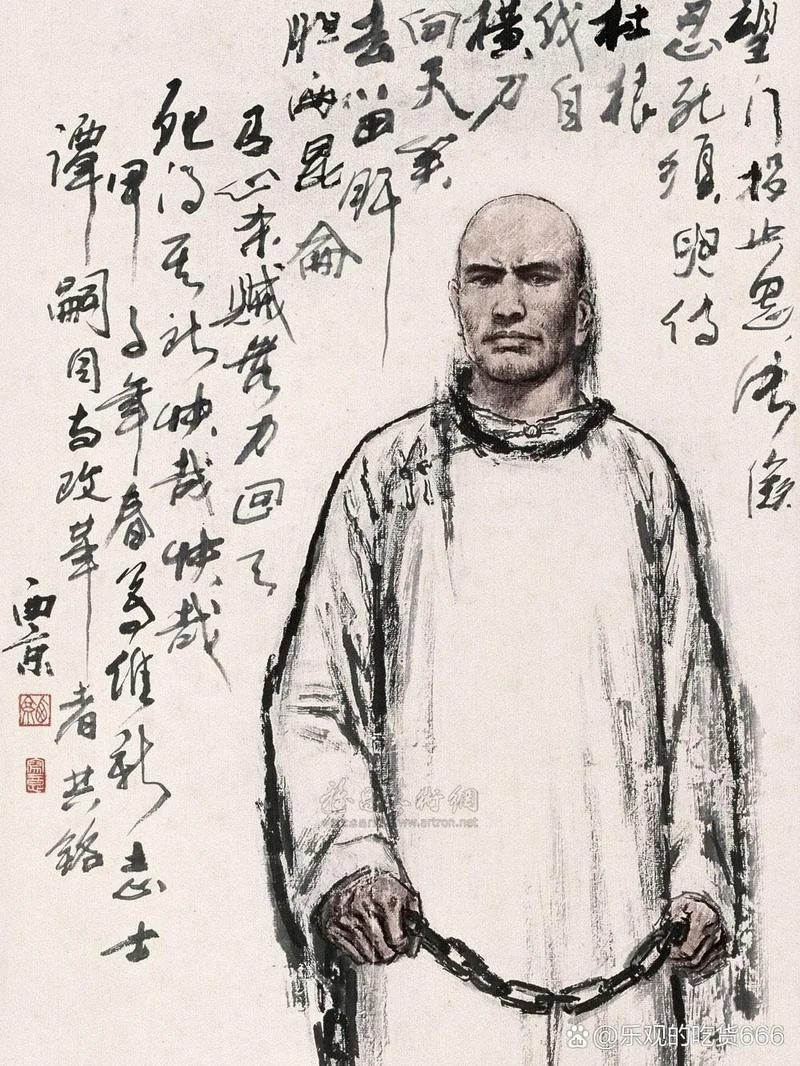 望门投止思張儉
忍死須臾待
杜根
我自
橫刀
向天笑
去留肝
胆兩昆侖
有心杀贼無力回天
死得其所快哉快哉
甲子年春为維新志士
譚嗣同与改革者共銘
西京
雅昌藝術網
www.artron.net
@乐观的吃货666